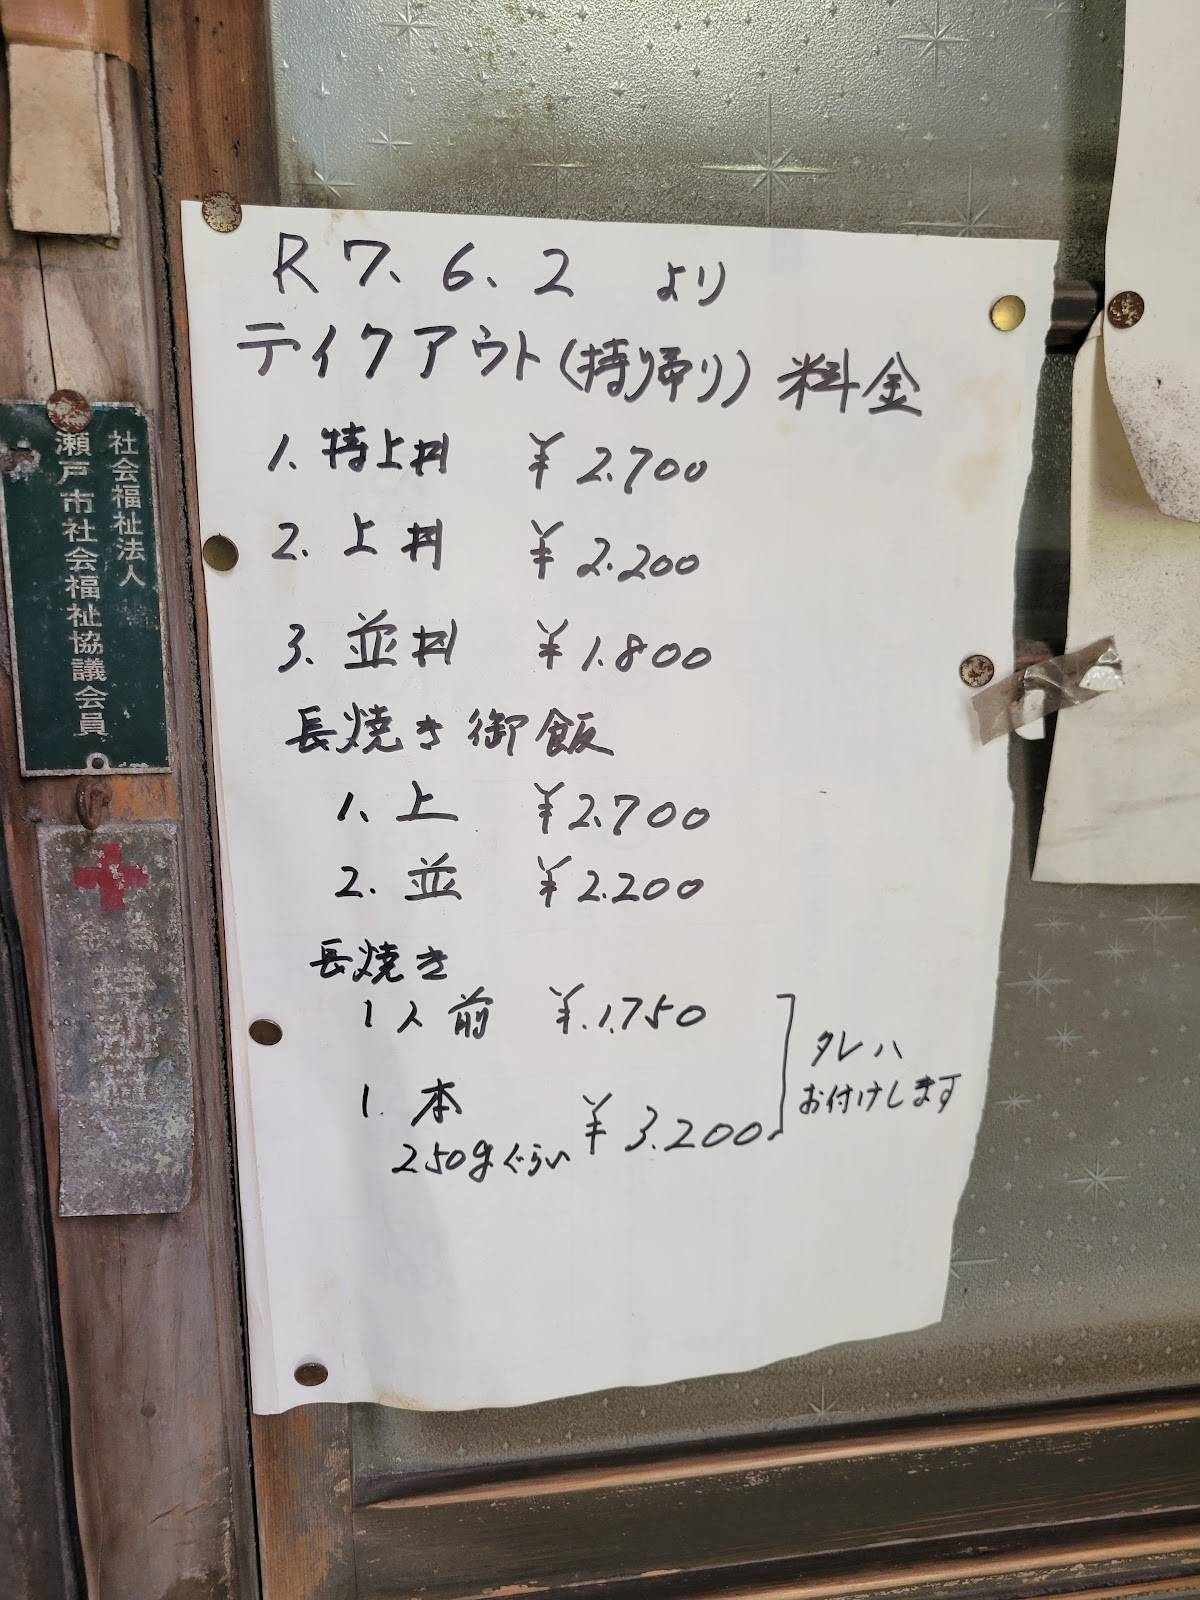 R7.6.2 より
テイクアウト(持り帰り) 料金
1. 特上丼 ¥2.700
2. 上丼 ¥2.200
3. 並丼 ¥1.800
長焼き御飯
1. 上 ¥2.700
2. 並 ¥2.200
長焼き
1人前 ¥.1.750
1. 本 ¥3.200
250gぐらい
タレハ
お付けします
社会福祉法人
瀬戸市社会福祉協議会員